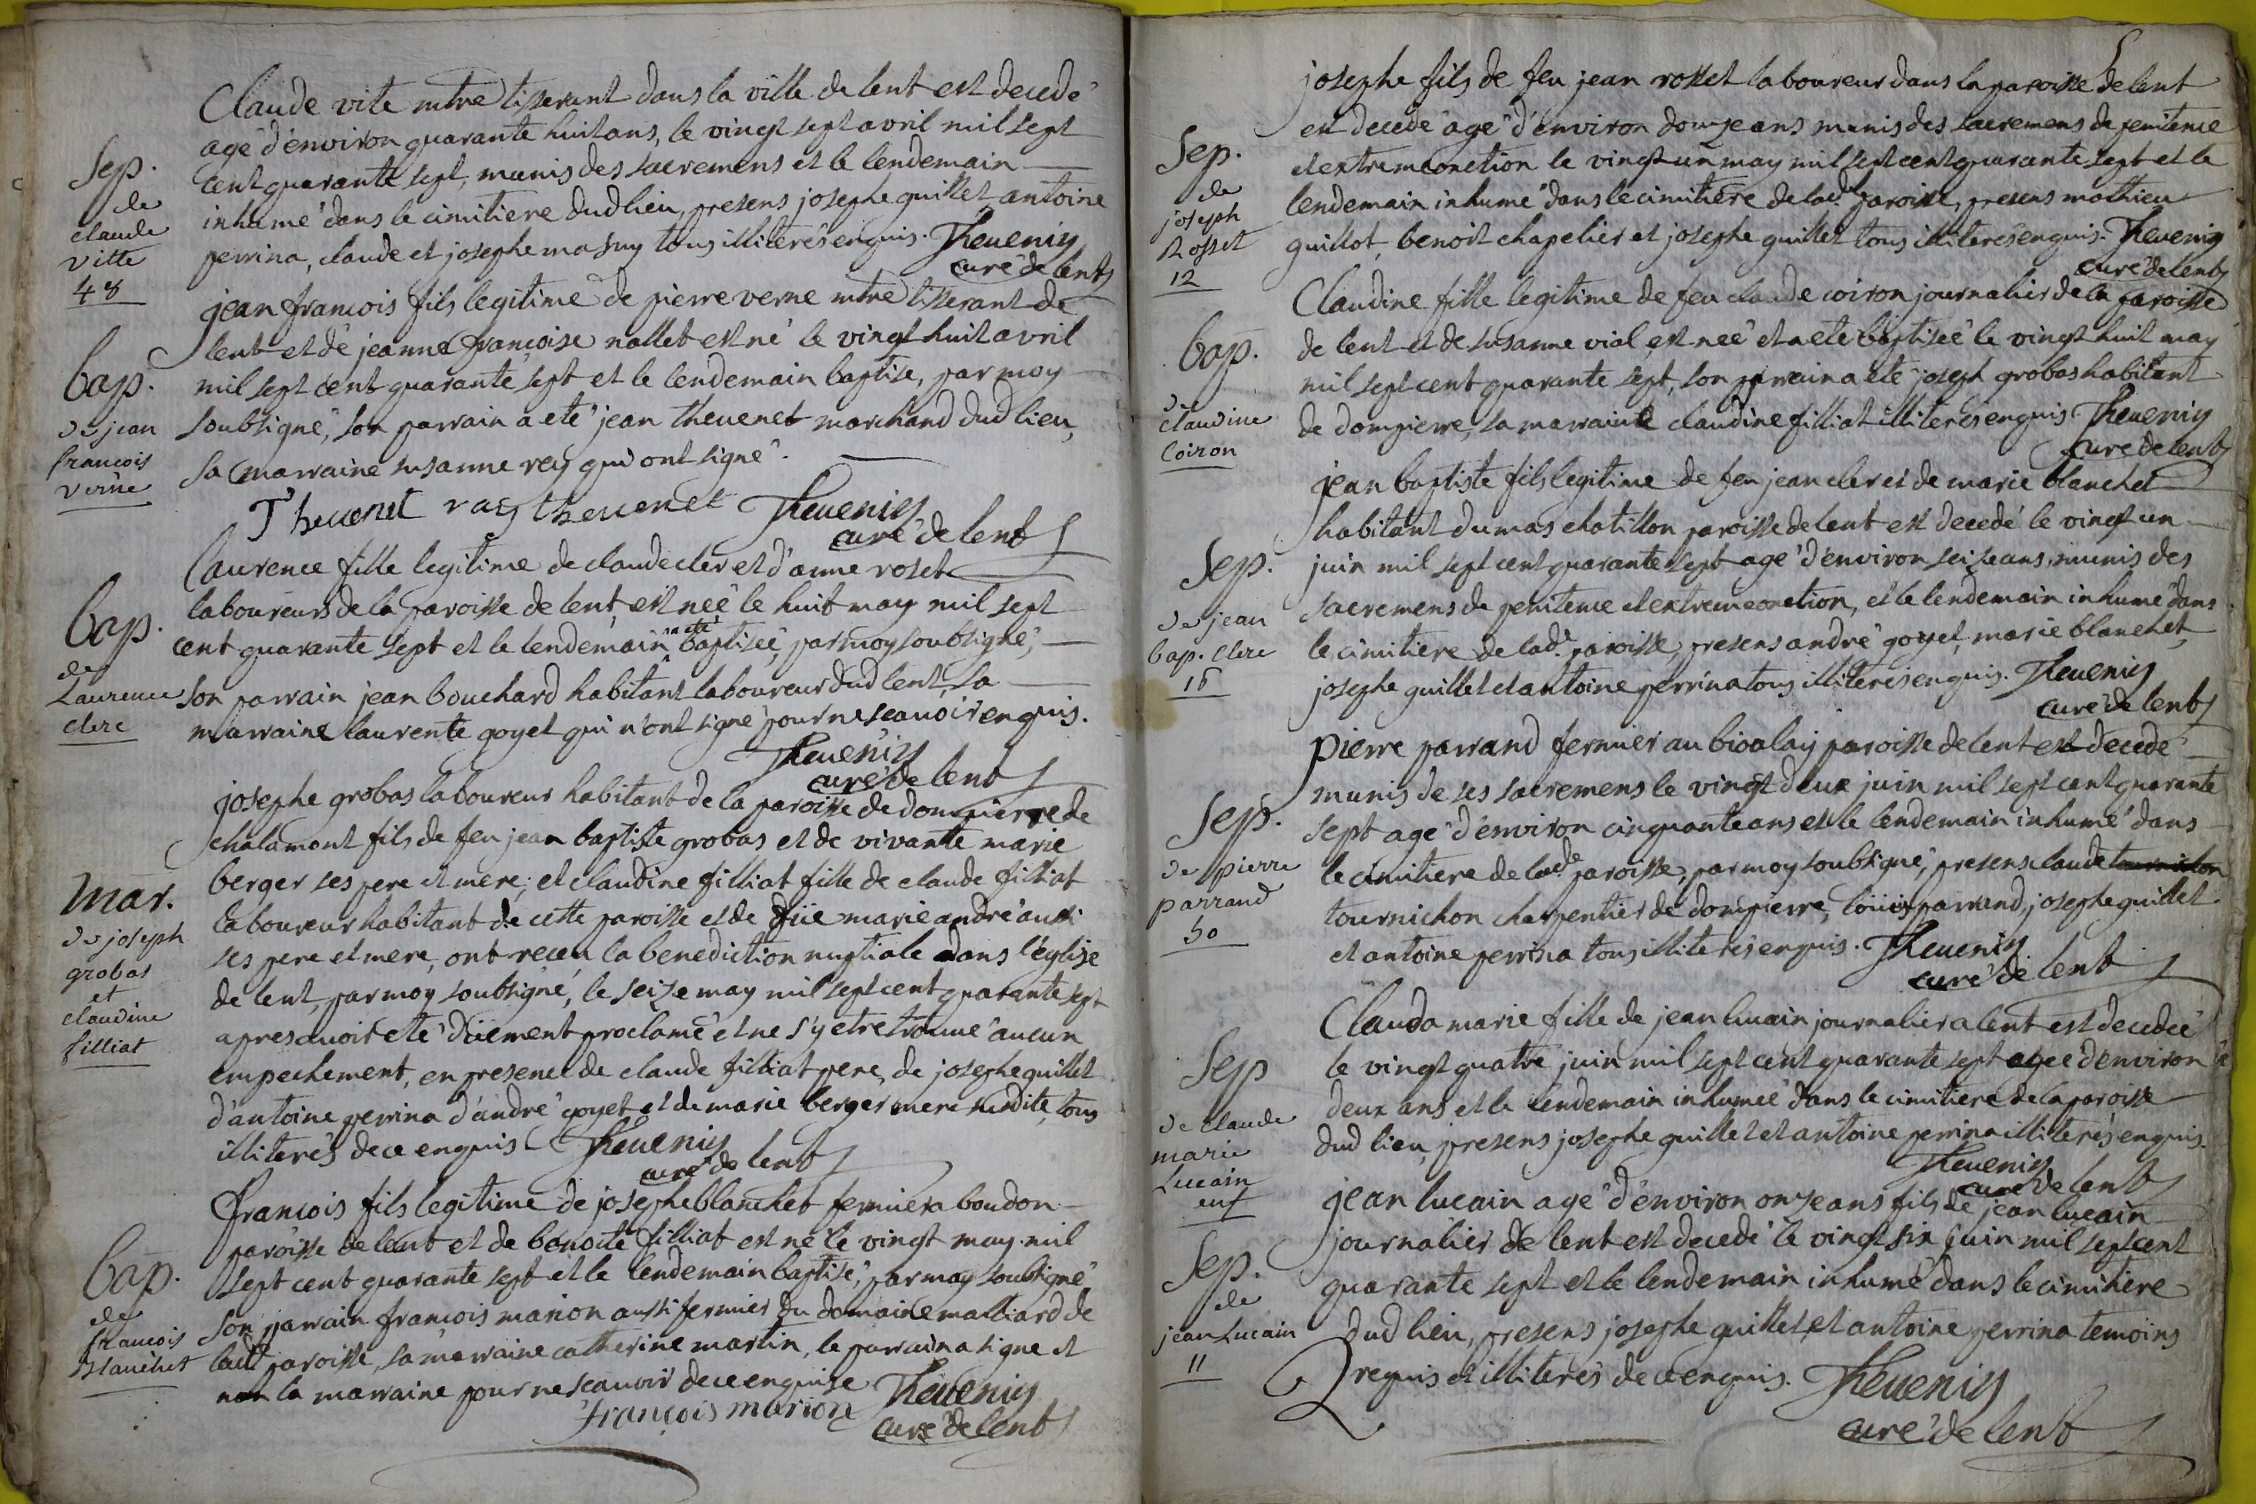 Claude vite mtre tisserant dans la ville de lent est decedé
agé d'environ quarante huit ans, le vingt sept avril mil sept
Sep.
cent quarante sept, munis des sacremens et le lendemain
de
claude
vitte
48
inhumé dans le cimitiere dud lieu, presens josephe guillet antoine
perrina, claude et josephe masuy tous illiterés enquis. Thevenin
curé de lent
jean francois fils legitime de pierre verne mtre tisserant de
lent et de jeanne françoise nallet est né le vingt huit avril
Bap.
de jean
francois
verne
mil sept cent quarante sept et le lendemain baptise, par moy
soubsigné, son parrain a eté jean thevenet marchand dud lieu,
sa marraine susanne rey qui ont signé.
Thevenet rey thevenet Thevenin
curé de lent
Laurence fille legitime de claude cler et d'anne roset
laboureurs de la paroisse de lent, est neé le huit may mil sept
Bap.
de
Laurence
clerc
cent quarante sept et le lendemain a eté baptiseé, par moy soubsigné,
son parrain jean bouchard habitant laboureur dud lent, sa
marraine laurente goyet qui n'ont signé pour ne scavoir enquis.
Thevenin
curé de lent
josephe grobas laboureur habitant de la paroisse de dompierre de
chalamont fils de feu jean baptiste grobas et de vivante marie
berger ses pere et mere; et claudine filliat fille de claude filliat
Mar.
de joseph
grobas
et
claudine
filliat
laboureur habitant de cette paroisse et de füe marie andré aussi
ses pere et mere, ont receu la benediction nuptiale dans l'église
de lent, par moy soubsigné, le seize may mil sept cent quarante sept
apres avoir eté düement proclamé et ne s'y etre trouvé aucun
empechement, en presence de claude filliat pere, de josephe guillet
d'antoine perrina d'andré goyet et de marie berger mere susdite, tous
illiterés de ce enquis Thevenin
curé de lent
francois fils legitime de josephe blanchet fermier a boudon
paroisse de lent et de benoite filliat est né le vingt may mil
Bap.
de
francois
Blanchet
sept cent quarante sept et le lendemain baptisé, par moy soubsigné
son parrain francois marion aussi fermier du domaine malliard de
lad paroisse, sa marraine catherine martin, le parrain a signe et
non la marraine pour ne scavoir de ce enquise Thevenin
françois marion curé de lent
josephe fils de feu jean rosset laboureur dans la paroisse de lent
est decedé agé d'environ douze ans munis des sacremens de penitence
Sep.
de
joseph
Rosset
12
et extremeonction le vingt un may mil sept cent quarante sept et le
lendemain inhumé dans le cimitiere de lade paroisse, presens mathieu
guillot, benoit chapelier et josephe guillet tous illiterés enquis. Thevenin
curé de lent
Claudine fille legitime de feu claude coiron journalier de la paroisse
Bap.
de
claudine
Coiron
de lent et de susanne vial est neé et a eté baptiseé le vingt huit may
mil sept cent quarante sept, son parrain a eté joseph grobas habitant
de dompierre, sa marraine claudine filliat illiterés enquis Thevenin
curé de lent
jean baptiste fils legitime de feu jean cler et de marie blanchet
habitant du mas chatillon paroisse de lent est decedé le vingt un
Sep.
de jean
bap. clerc
16
juin mil sept cent quarante sept agé d'environ seize ans, munis des
sacremens de penitence et extremeonction, et le lendemain inhumé dans
le cimitiere de lade paroisse, presens andré goyet, marie blanchet,
josephe guillet et antoine perrina tous illiterés enquis. Thevenin
curé de lent
pierre parrand fermier au biolay paroisse de lent est decedé
munis de ses sacremens le vingt deux juin mil sept cent quarante
Sep.
de pierre
parrand
50
sept agé d'environ cinquante ans et le lendemain inhumé dans
le cimitiere de lade paroisse, par moy soubsigné, presens claude tournichon
tournichon charpentier de dompierre, loüis parrand, josephe guillet
et antoine perrina tous illiterés enquis. Thevenin
curé de lent
Clauda marie fille de jean lucain journalier a lent est decedeé
Sep
de claude
marie
Lucain
enf
le vingt quatre juin mil sept cent quarante sept ageé d'environ
deux ans et le lendemain inhumeé dans le cimitiere de la paroisse
dud lieu, presens josephe guillet et antoine perrina illiterés enquis.
Thevenin
curé de lent
jean lucain agé d'environ onze ans fils de jean lucain
journalier de lent est decedé le vingt six juin mil sept cent
Sep.
de
jean Lucain
11
quarante sept et le lendemain inhumé dans le cimitiere
dud lieu, presens josephe guillet et antoine perrina temoins
requis et illiterés de ce enquis. Thevenin
curé de lent